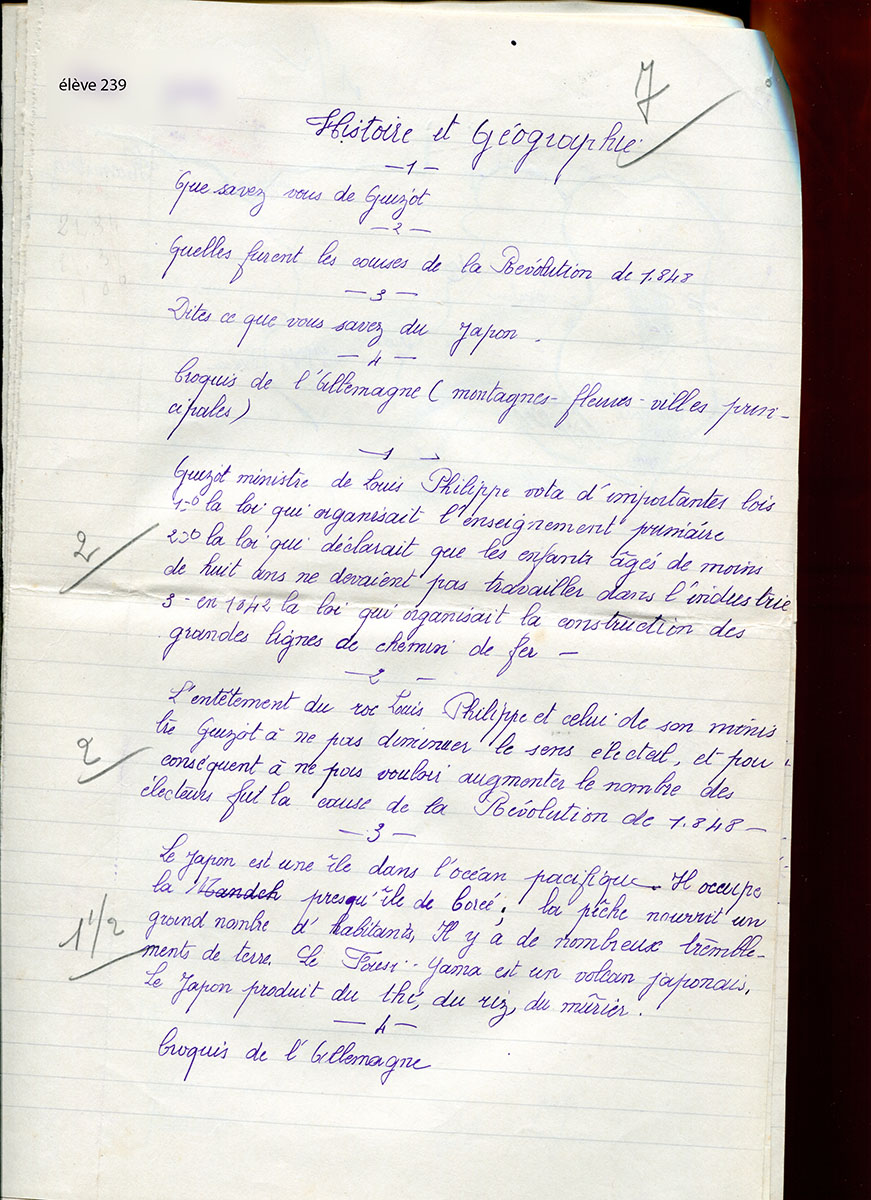 élève 239
7
Histoire et Géographie
— 1 —
Que savez vous de Guizot
— 2 —
Quelles furent les causes de la Révolution de 1.848
— 3 —
Dites ce que vous savez du Japon.
— 4 —
Croquis de l'Allemagne (montagnes - fleuves - villes prin-
cipales)
— 1 —
Guizot ministre de Louis Philippe vota d'importantes lois
1-° la loi qui organisait l'enseignement primaire
2 2° la loi qui déclarait que les enfants âgés de moins
de huit ans ne devaient pas travailler dans l'industrie
3 - en 1842 la loi qui organisait la construction des
grandes lignes de chemin de fer —
— 2 —
L'entêtement du roi Louis Philippe et celui de son minis
tre Guizot à ne pas diminuer le sens electal, et pou
2 conséquent à ne pas vouloir augmenter le nombre des
électeurs fut la cause de la Révolution de 1.848 —
— 3 —
Le Japon est une île dans l'océan pacifique. Il occupe
la presqu'île de Coreé; la pêche nourrit un
1 1/2 grand nombre d'habitants. Il y à de nombreux trêmble-
ments de terre. Le Fousi-Yama est un volcan japonais.
Le Japon produit du thé, du riz, du mûrier.
— 4 —
Croquis de l'Allemagne